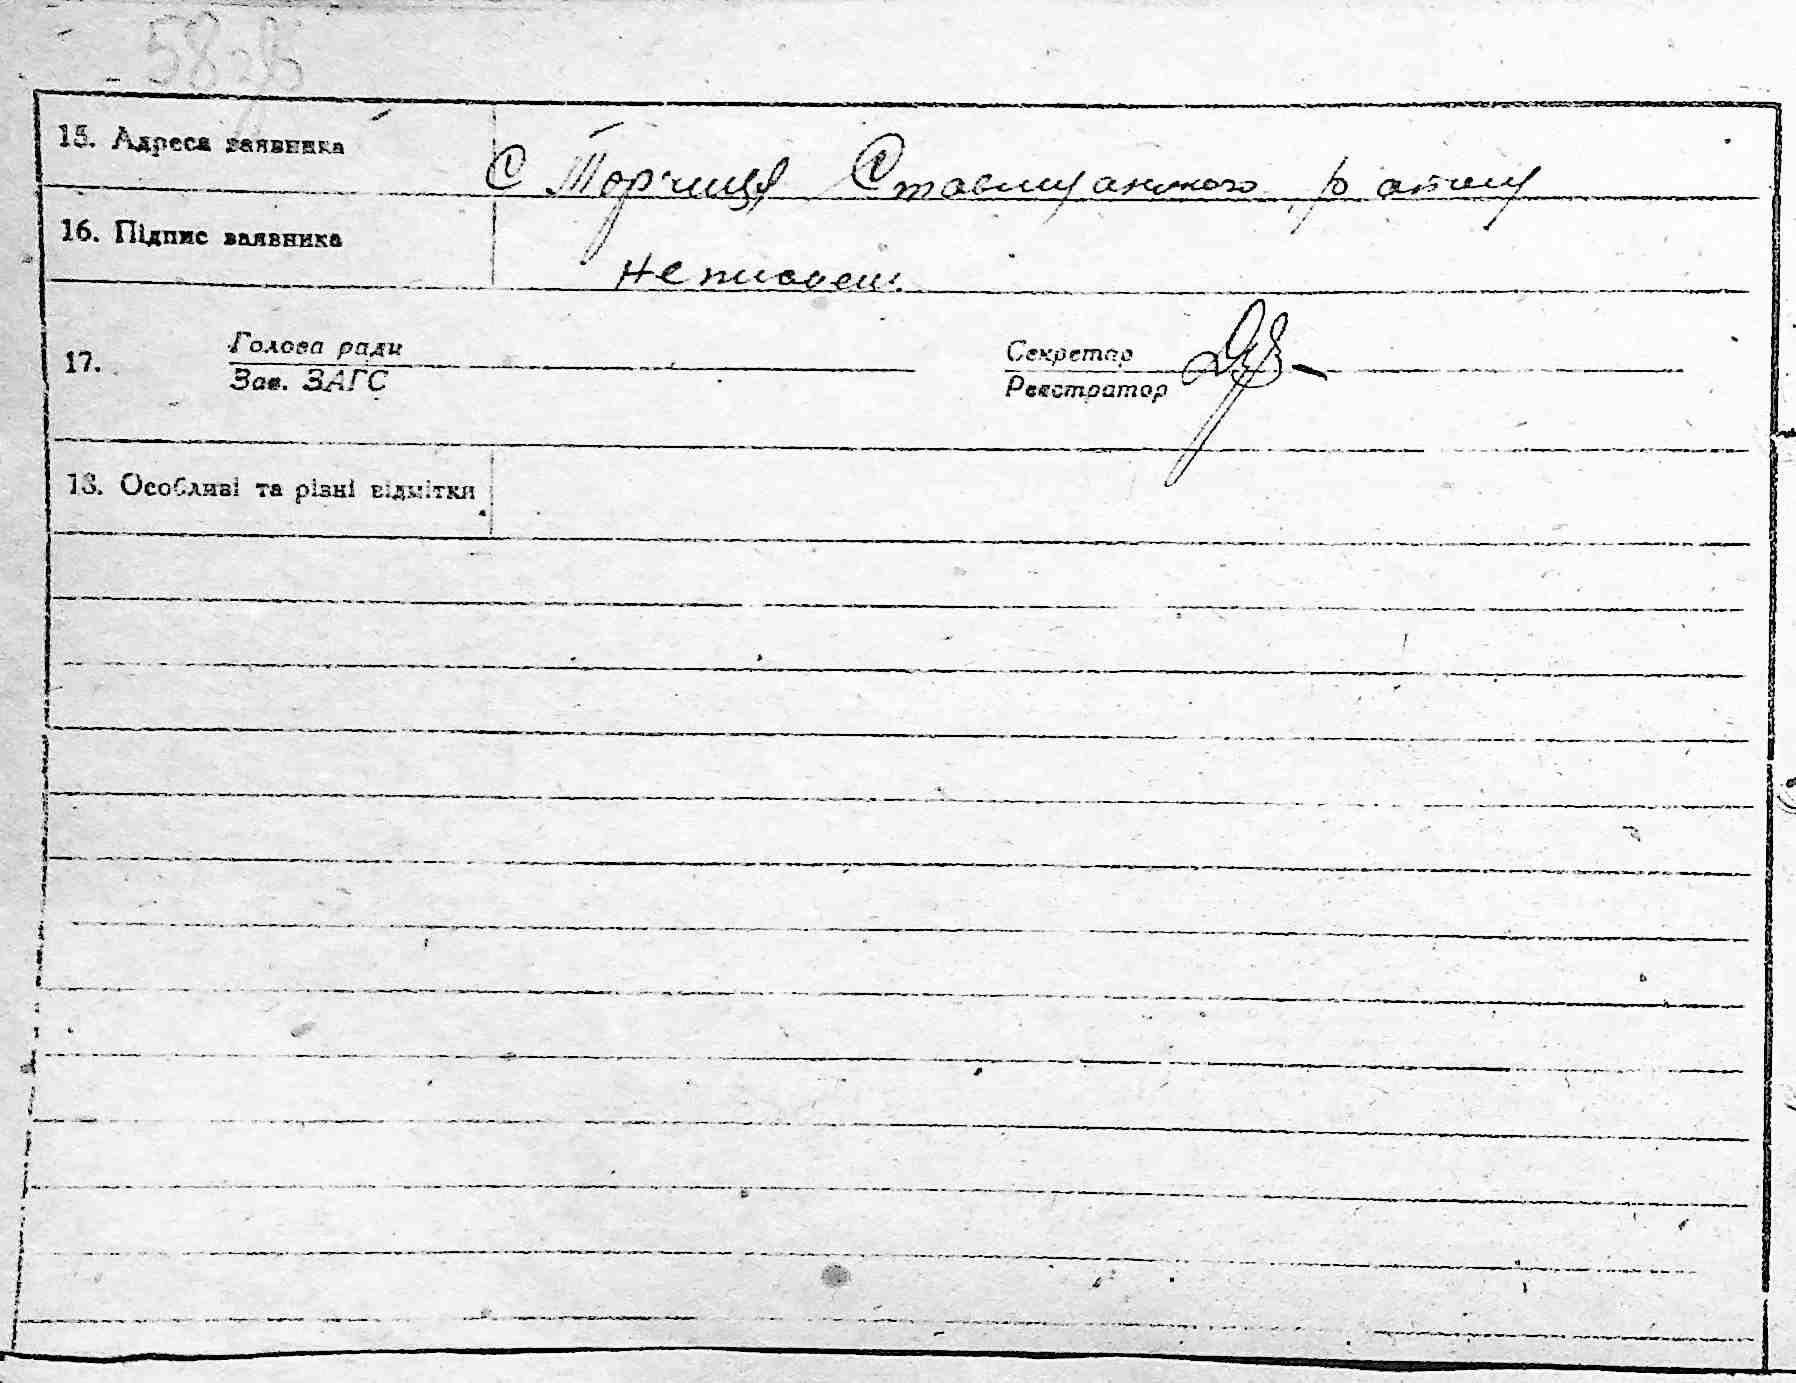 58 зв
15. Адреса заявника С Торчиця Ставищанского району
16. Підпис заявника неписьмен.
17. Голова ради Секретар
Зав. ЗАГС Реєстратор
18. Особливі та різні відмітки